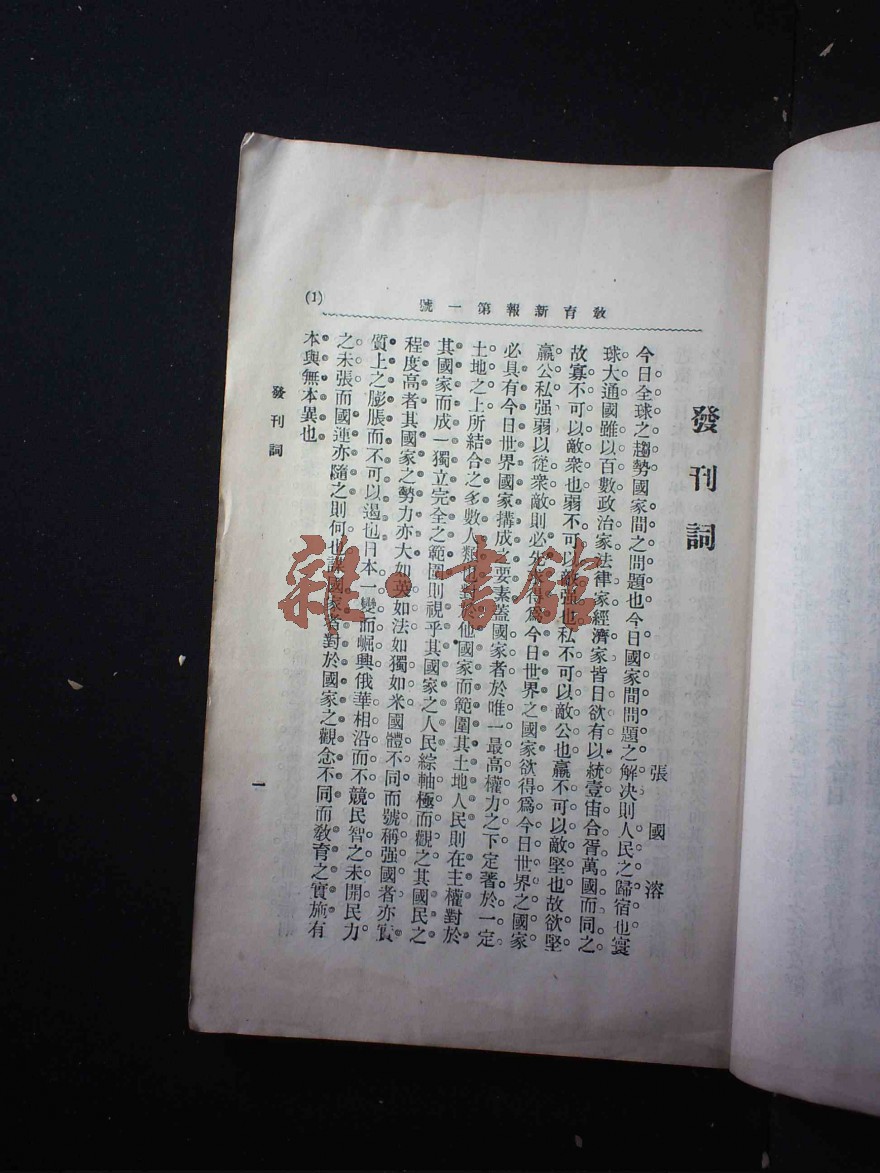 教育新報第一號
(1)
發刊詞
張國溶
今日全球之趨勢國家間之問題也今日國家間問題之解决則人民之歸宿也寰
球大通國雖以百數政治家法律家經濟家皆日欲有以統壹宙合胥萬國而同之
故寡不可以敵衆也弱不可以敵强也私不可以敵公也羸不可以敵堅也故欲堅
羸公私强弱以從衆敵則必先求得爲今日世界之國家欲得爲今日世界之國家
必具有今日世界國家搆成之要素蓋國家者於唯一最高權力之下定著於一定
土地之上所結合之多數人類也對於他國家而範圍其土地人民則在主權對於
其國家而成一獨立完全之範圍則視乎其國家之人民綜軸極而觀之其國民之
程度高者其國家之勢力亦大如英如法如獨如米國體不同而號稱强國者亦實
質上之膨脹而不可以遏也日本一變而崛興俄華相沿而不競民智之未開民力
之未張而國運亦隨之則何也謀國家者對於國家之觀念不同而敎育之實施有
本與無本異也
發刊詞
一
雜·書館